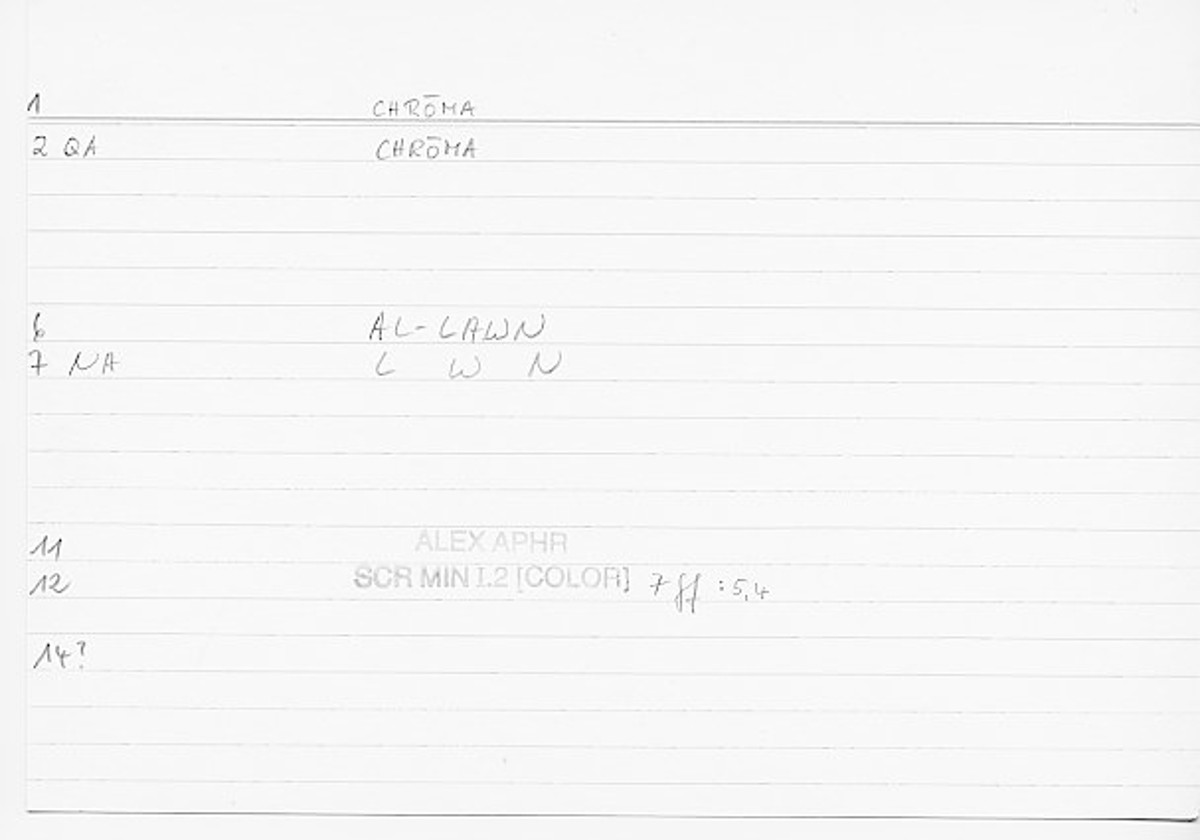 1 CHRŌMA
2 QA CHRŌMA
6 AL-LAWN
7 NA L W N
11 ALEX APHR
12 SCR MIN I.2 [COLOR] 7 ff : 5,4
14?